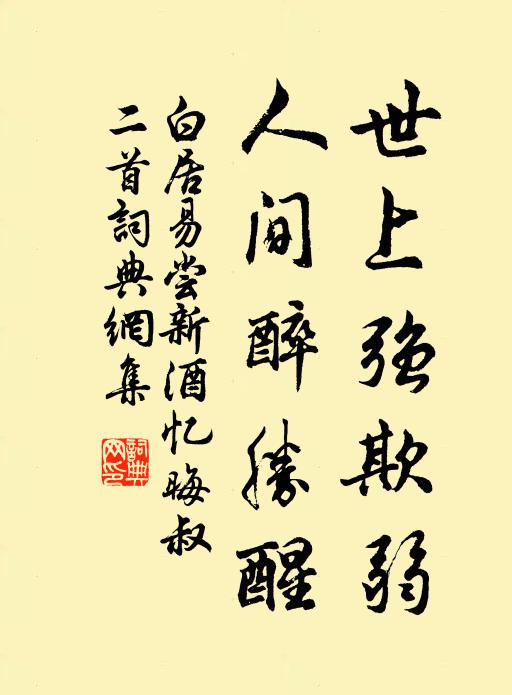 世上強欺弱
人间醉勝醒
白居易尝新酒忆晦叔
二首詞典網集
詞典
网印